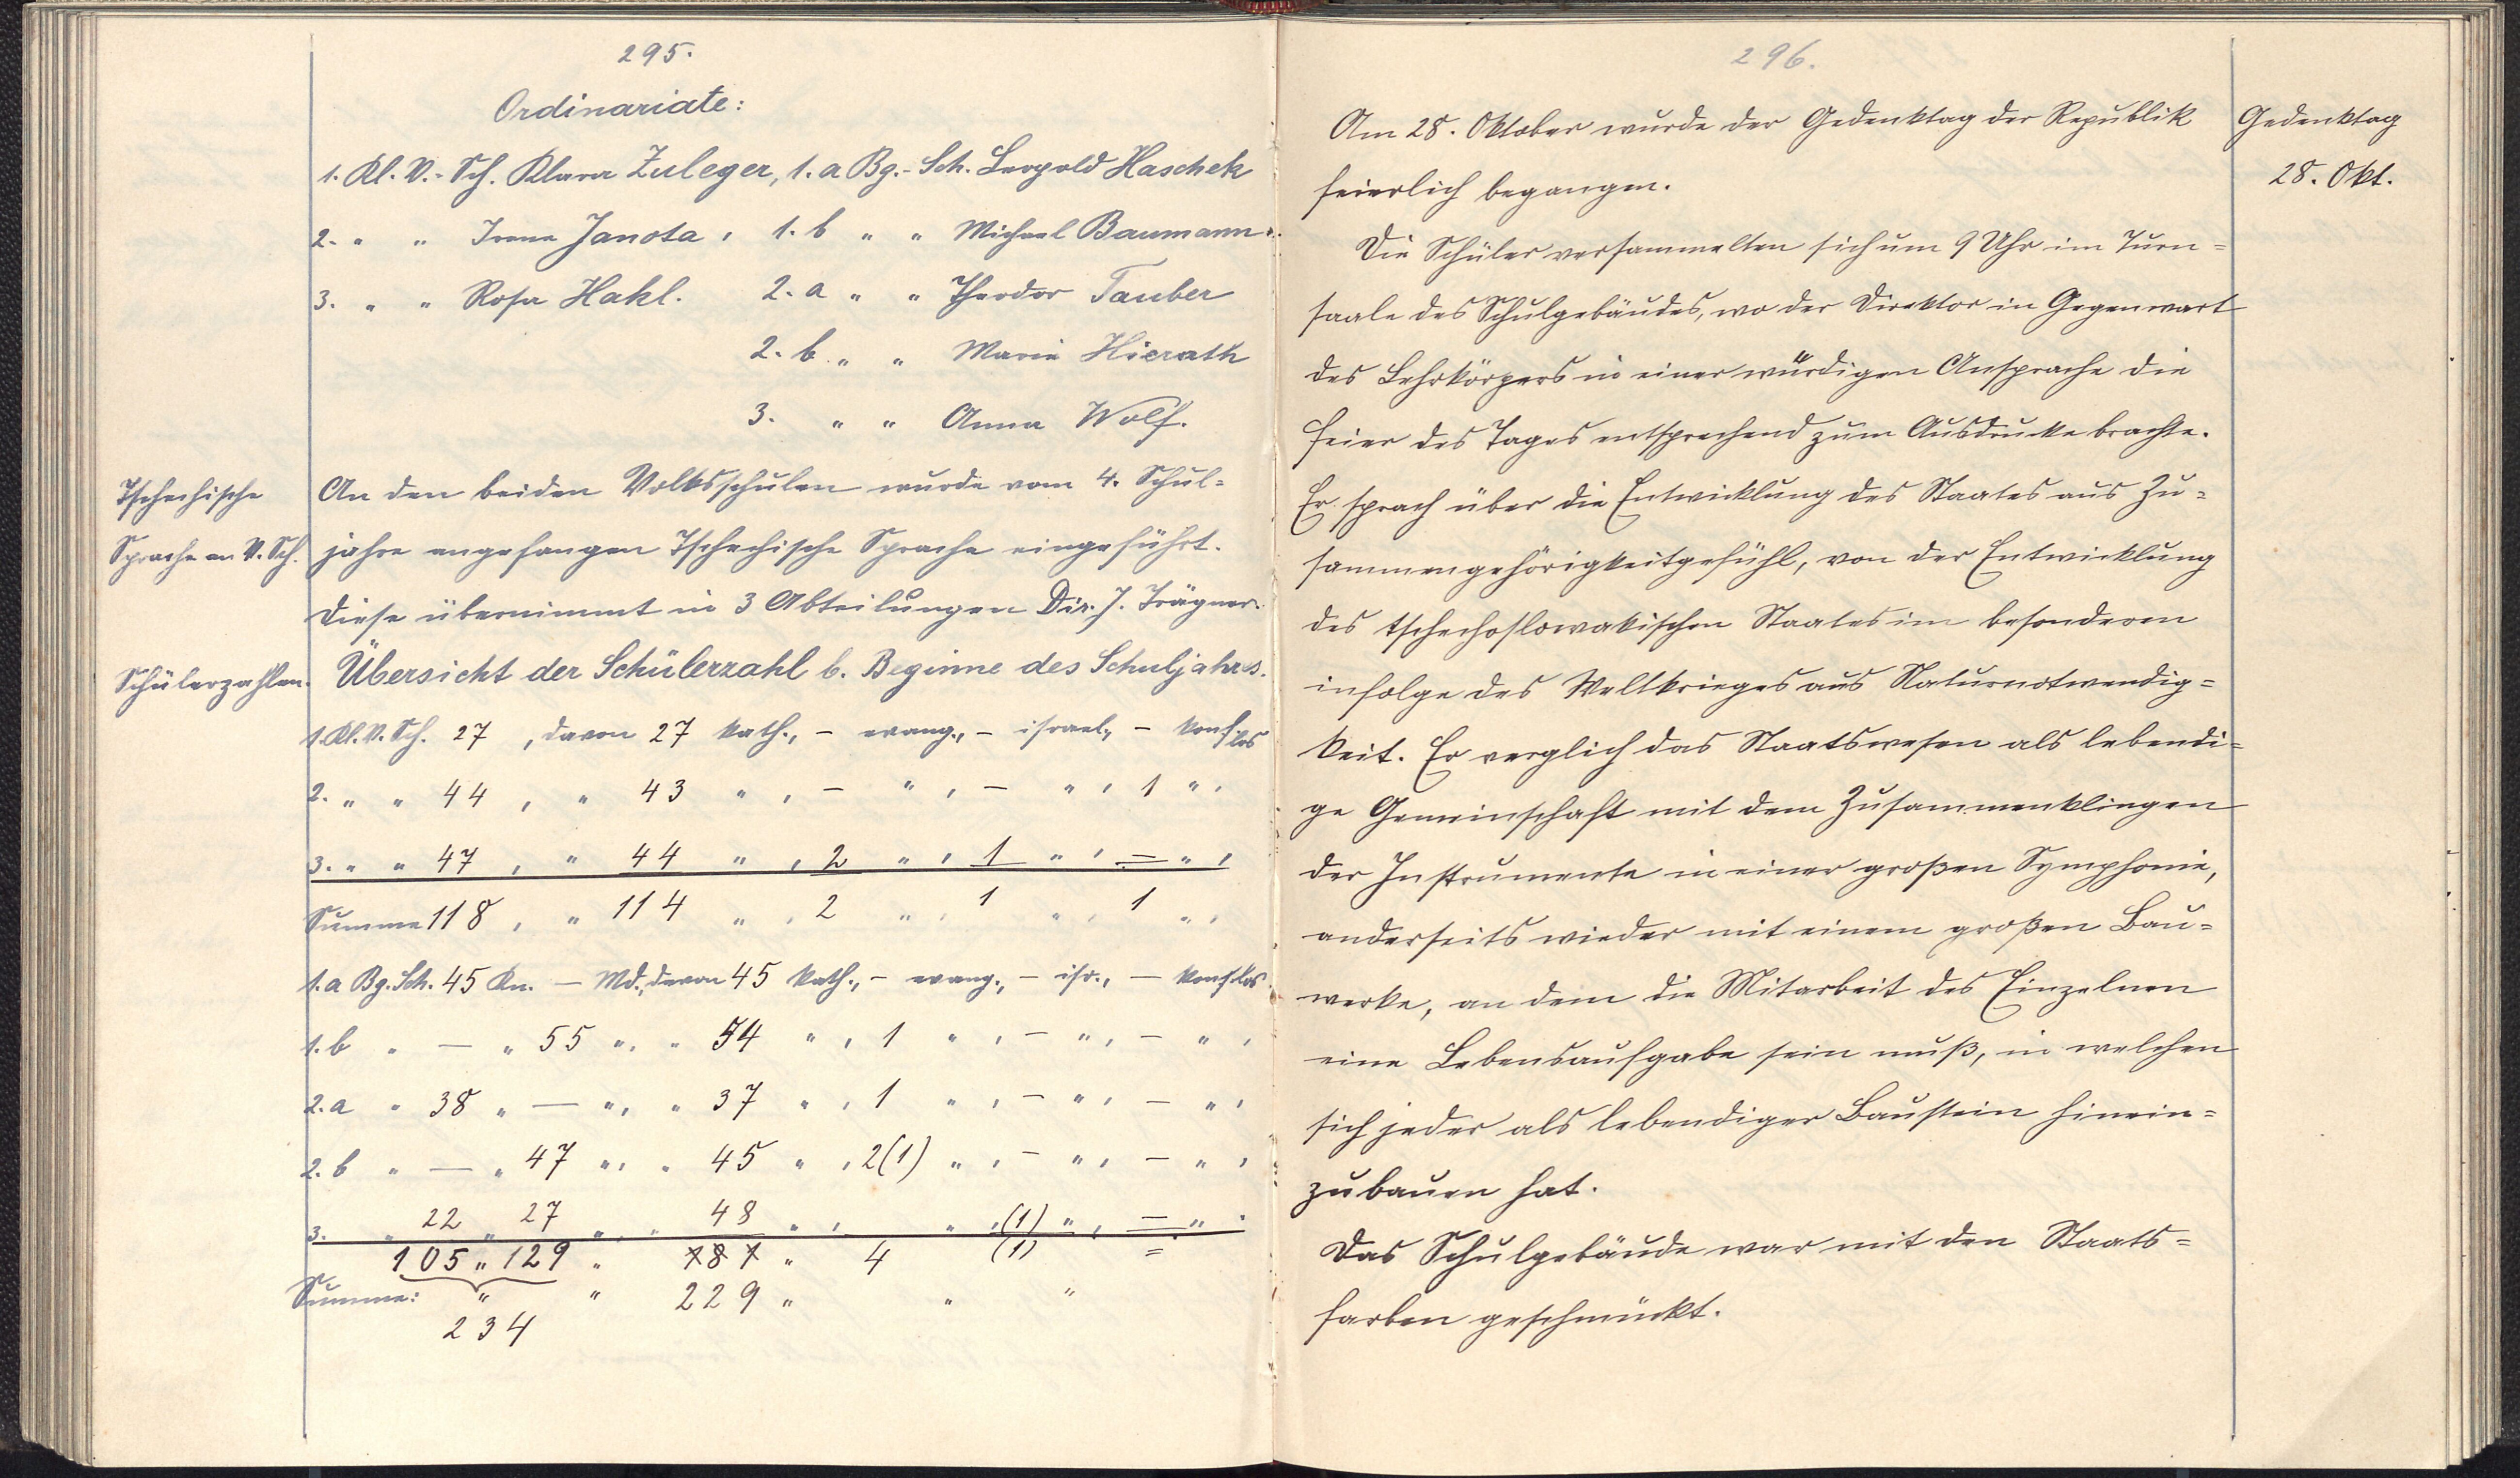 295.
Ordinariate:
1. Kl. V.-Sch. Klara Zuleger, 1. a Bg.-Sch. Leopold Haschek
2. " " Irene Janota, 1. b " " Michael Baumann.
3. " " Rosa Hakl. 2. a " " Theodor Tauber
2. b. " " Marie Hierath
3. " " Anna Wolf.
Tschechische
Sprache an V. Sch.
An den beiden Volksschulen wurde vom 4. Schul=
jahre angefangen Tschechische Sprache eingeführt.
Diese übernimmt in 3 Abteilungen Dir. J. Trägner.
Schülerzahlen.
Übersicht der Schülerzahl b. Beginne des Schuljahres.
1. Kl. V. Sch. 27, davon 27 kath., - evang., - israel., - konflos
2. " " 44, " 43 ", - ", - ", 1 ",
3. " " 47, " 44 ", 2 ", 1 ", = ",
Summe 118, " 114 ", 2 ", 1 ", 1 ",
1. a Bg. Sch. 45 Kn. — Md., davon 45 kath., - evang., - isr., - konflos.
1. b " — " 55 ", " 54 ", 1 ", - ", - ",
2. a " 38 " — ", " 37 ", 1 ", - ", - ",
2. b " — " 47 ", " 45 ", 2(1) ", - ", - ",
3. " 22 " 27 ", " 48 ", ", (1) ", = ".
105 " 129 " 187 " 4 (1) =
Summe: " " 229 " " "
234
296.
Gedenktag
28. Okt.
Am 28. Oktober wurde der Gedenktag der Republik
feierlich begangen.
Die Schüler versammelten sich um 9 Uhr im Turn=
saale des Schulgebäudes, wo der Direktor in Gegenwart
des Lehrkörpers in einer würdigen Ansprache die
Feier des Tages entsprechend zum Ausdrucke brachte.
Er sprach über die Entwicklung des Staates aus Zu=
sammengehörigkeitgefühl, von der Entwicklung
des tschechoslowakischen Staates im besonderen
infolge des Weltkrieges aus Naturnotwendig=
keit. Er verglich das Staatswesen als lebendi=
ge Gemeinschaft mit dem Zusammenklingen
der Instrumente in einer großen Symphonie,
anderseits wieder mit einem großen Bau=
werke, an dem die Mitarbeit des Einzelnen
eine Lebensaufgabe sein muß, in welchen
sich jeder als lebendiger Baustein hinein=
zubauen hat.
Das Schulgebäude war mit den Staats=
farben geschmückt.